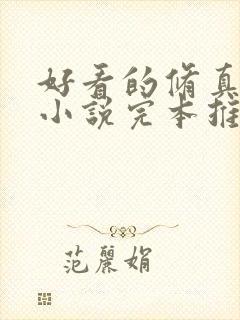 好看的脩真
小說完本推
范麗娟